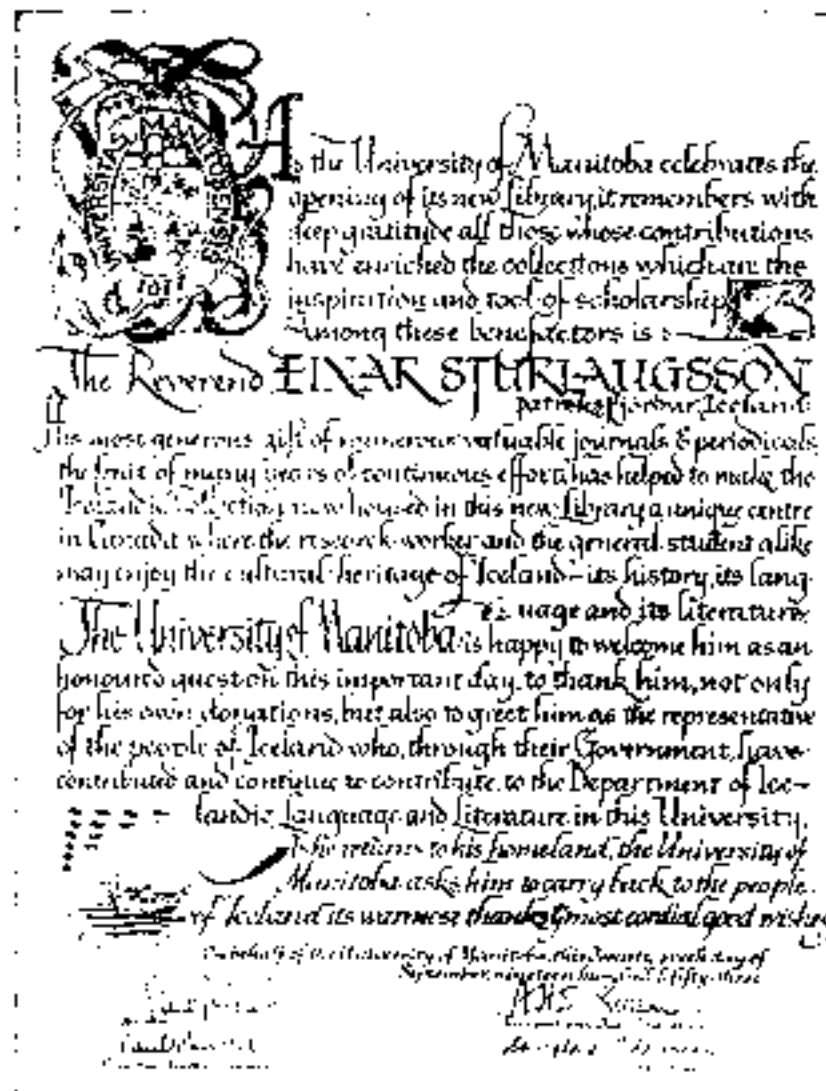 As the University of Manitoba celebrates the
opening of its new Library, it remembers with
deep gratitude all those whose contributions
have enriched the collections which are the
inspiration and tool of scholarship
Among these benefactors is :
The Reverend EINAR STURLAUGSSON
Patreksfjördur, Iceland.
His most generous gift of numerous valuable journals & periodicals
the fruit of many years of continuous effort, has helped to make the
Icelandic Collection now housed in this new Library a unique centre
in Canada where the research worker and the general student alike
may enjoy the cultural heritage of Iceland – its history, its lang-
uage and its literature.
The University of Manitoba is happy to welcome him as an
honoured guest on this important day, to thank him, not only
for his own donations, but also to greet him as the representative
of the people of Iceland who, through their Government, have
contributed and continue to contribute, to the Department of Ice-
landic Language and Literature in this University.
As he returns to his homeland, the University of
Manitoba asks him to carry back to the people
of Iceland its warmest thanks & most cordial good wishes
On behalf of the University of Manitoba, this Twenty day of
September, nineteen hundred & fifty three